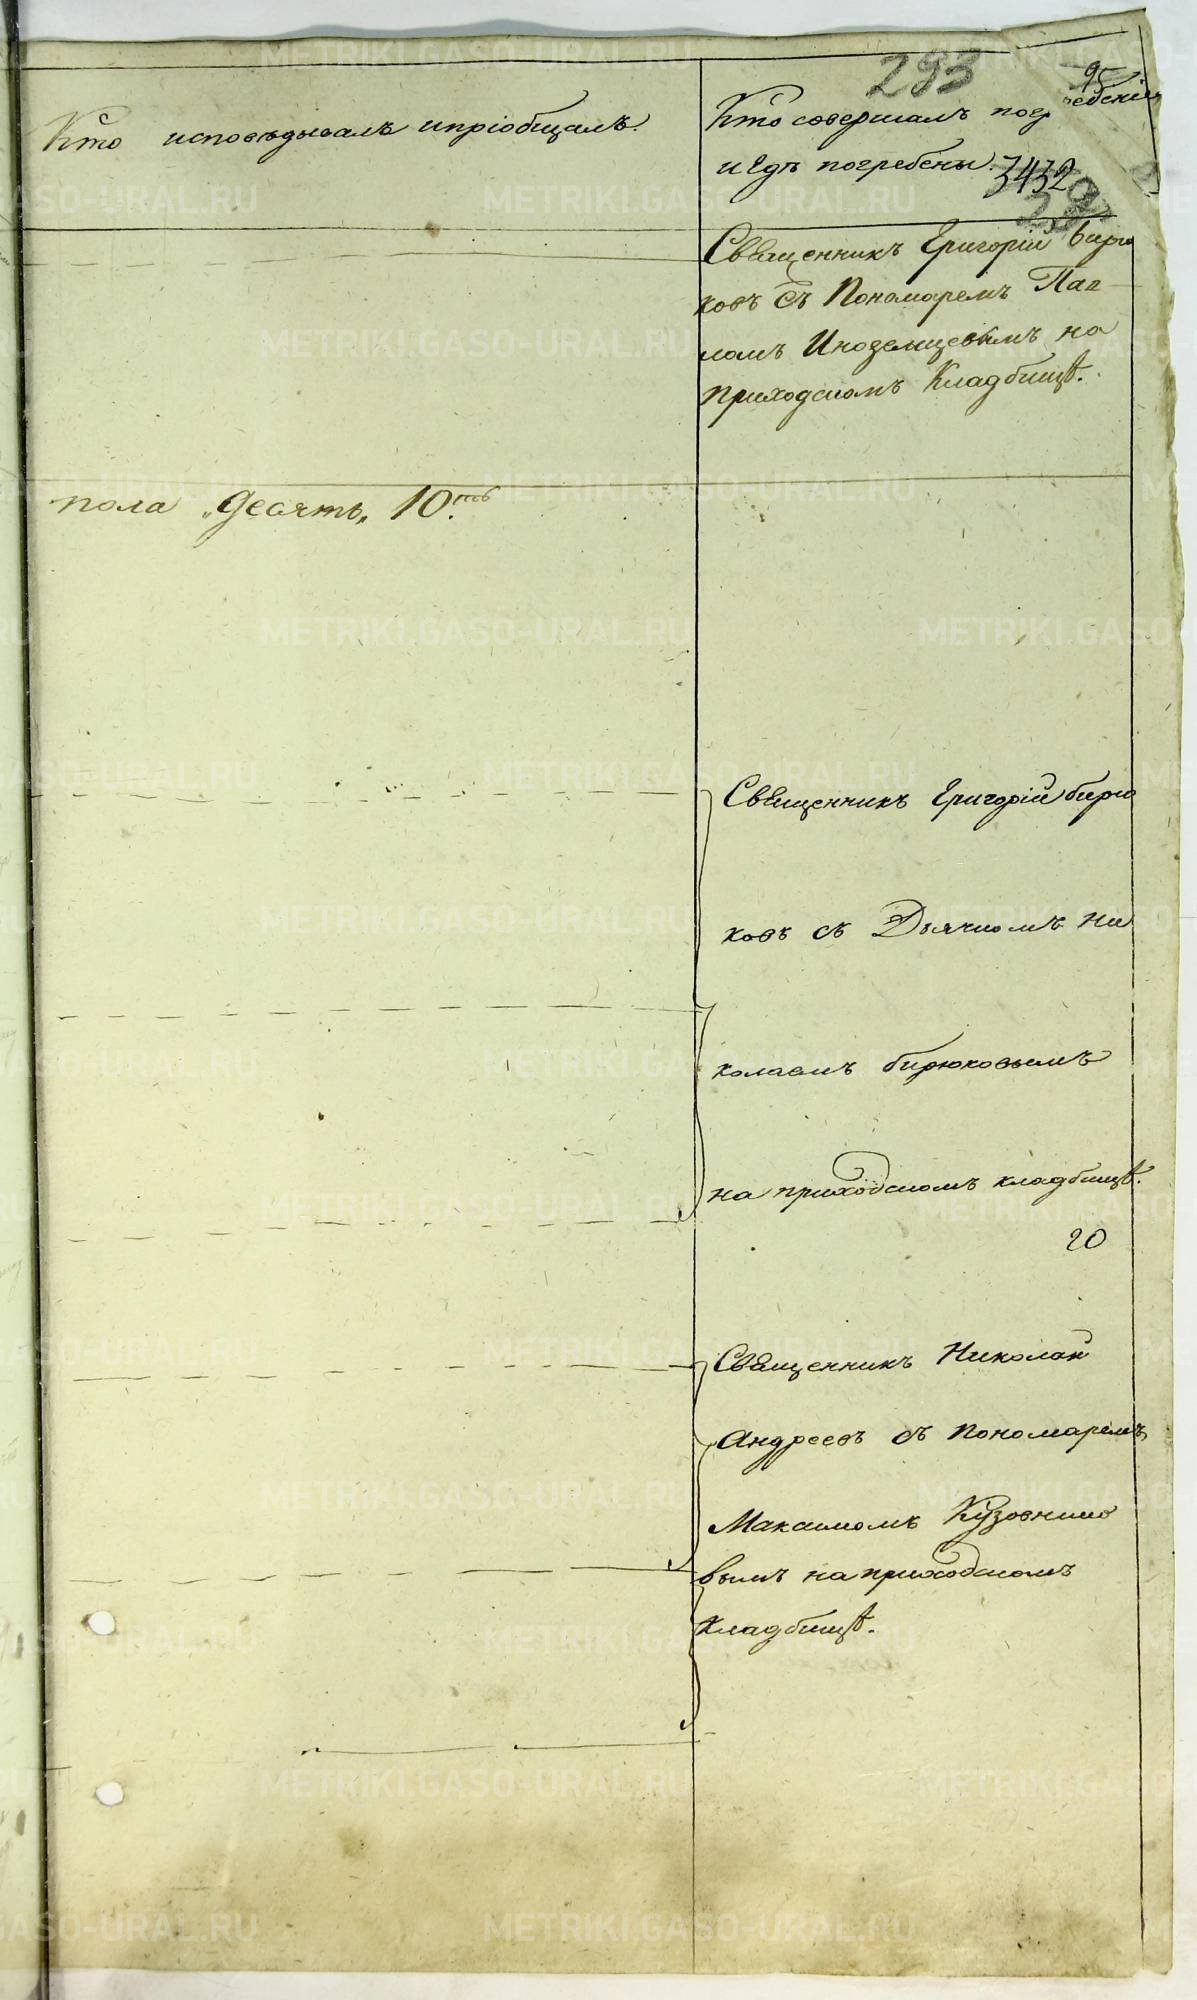 293
95
Кто исповѣдывалъ и пріобщалъ.
Кто совершалъ погребеніе
и гдѣ погребены.
3432
Священникъ Григорій Бирю
ковъ съ Пономаремъ Пав
ломъ Иноземцевымъ на
приходскомъ Кладбищѣ.
пола „десять„ 10.ть
Священникъ Григорій Бирю
ковъ съ Дьячкомъ Ни
колаемъ Бирюковымъ
на приходскомъ кладбищѣ.
20
Священникъ Николай
Андреевъ съ пономаремъ
Максимомъ Кузовнико
вымъ на приходскомъ
кладбищѣ.
METRIKI.GASO-URAL.RU